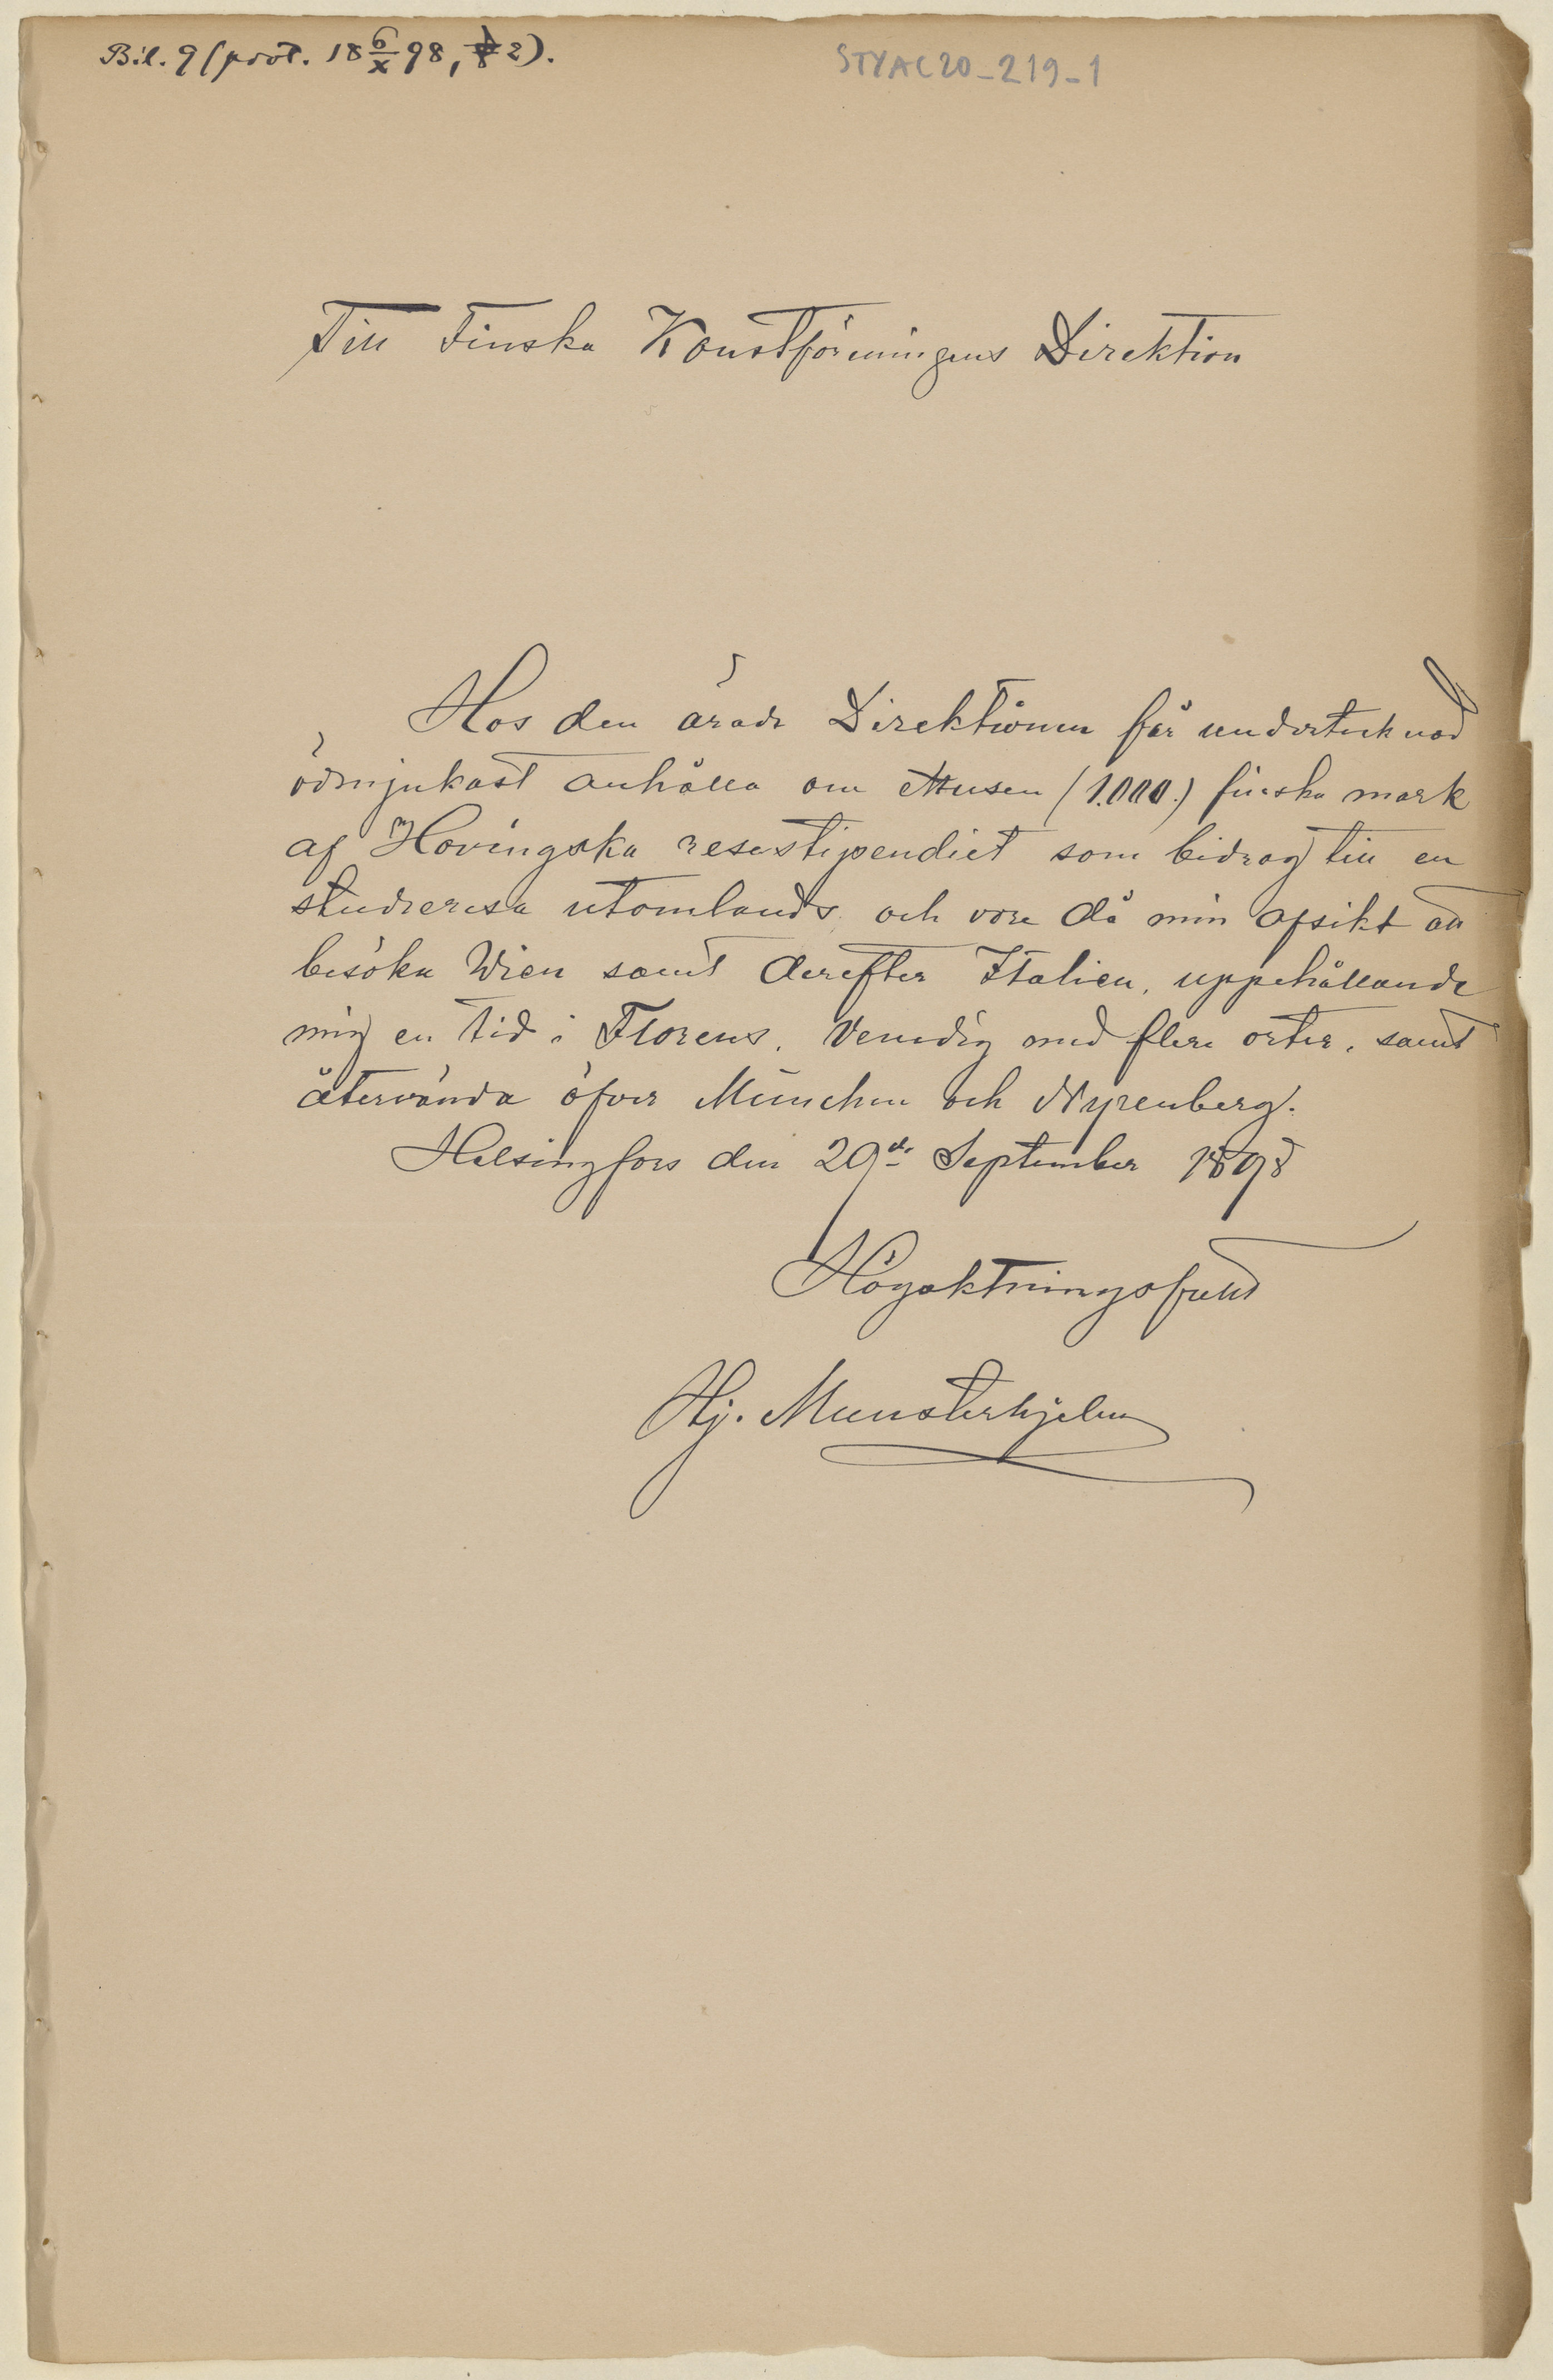 Bil. 9 (prot. 18 6/X 98, § 2).
STYAC20_219_1
Till Finska Konstföreningens Direktion
Hos den ärade Direktionen får undertecknad
ödmjukast anhålla om ettusen (1.000.) finska mark
af Hovingska resestipendiet som bidrag till en
studieresa utomlands och vore då min afsikt att
besöka Wien samt derefter Italien, uppehållande
mig en tid i Florens, Venedig med flere orter, samt
återvända öfver München och Nyrenberg.
Helsingfors den 29de September 1898
Högaktningsfullt
Hj. Munsterhjelm